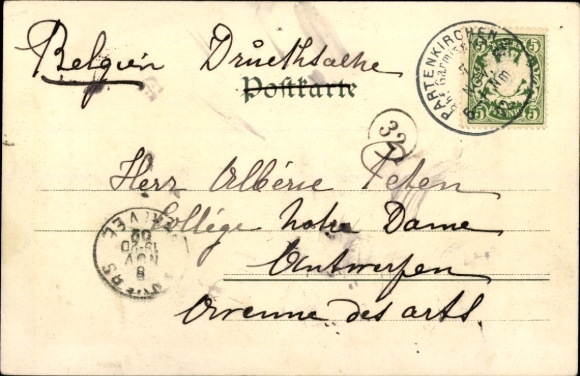 Belgien Drucksache
Postkarte
PARTENKIRCHEN
NOV
Nm
5 5
5 5
32
Herr Albéric Peten
Collège notre Dame
Antwerpen
Avenue des arts
ANVERS
8
NOV
19-20
02